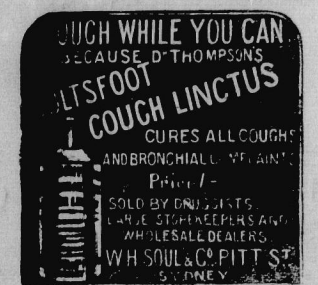 OUGH WHILE YOU CAN
BECAUSE DR THOMPSON'S
LTSFOOT
COUGH LINCTUS
CURES ALL COUGHS
AND BRONCHIAL
Price 1/-
SOLD BY DRUGGISTS
LARGE STOREKEEPERS AND
WHOLESALE DEALERS
W.H SOUL & Co. PITT ST
SYDNEY